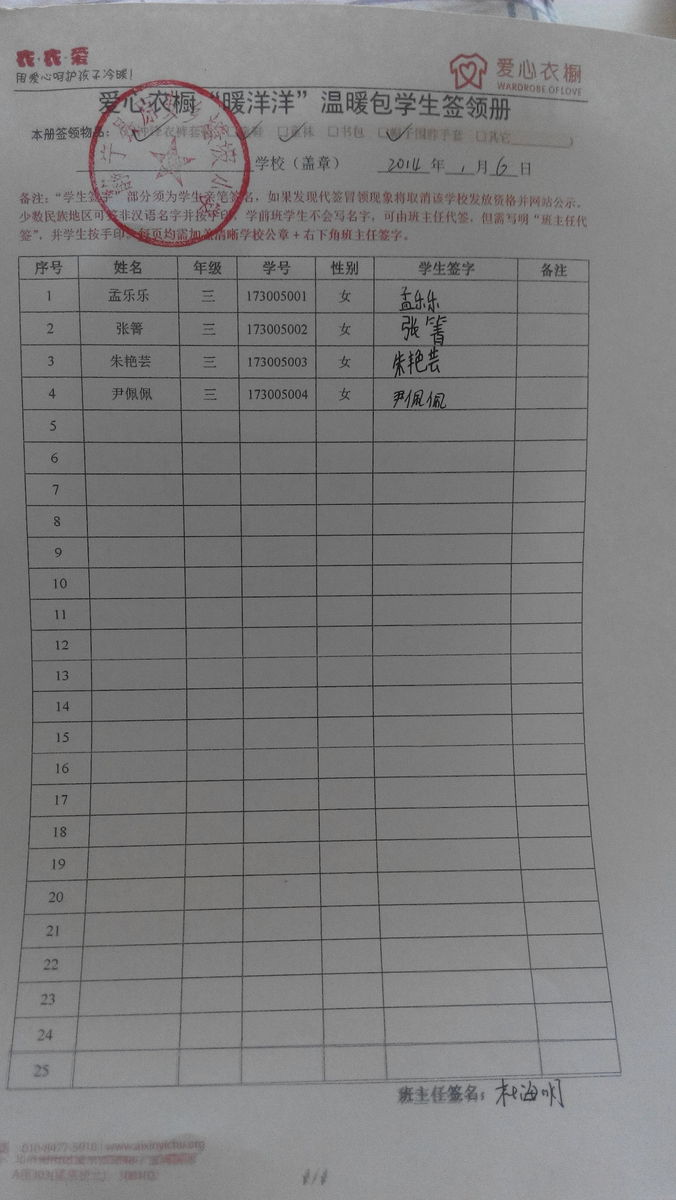 衣·衣·爱
用爱心呵护孩子冷暖！
爱心衣橱
WARDROBE OF LOVE
爱心衣橱“暖洋洋”温暖包学生签领册
本册签领物品： □童袜 □书包 □帽子围脖手套 □其它
学校（盖章） 2014 年 1 月 6 日
备注：“学生签字”部分须为学生亲笔签名，如果发现代签冒领现象将取消该学校发放资格并网站公示。
少数民族地区可签非汉语名字并按手印，学前班学生不会写名字，可由班主任代签，但需写明“班主任代
签”，并学生按手印。每页均需加盖清晰学校公章+右下角班主任签字。
序号 姓名 年级 学号 性别 学生签字 备注
1 孟乐乐 三 173005001 女 孟乐乐
2 张箐 三 173005002 女 张箐
3 朱艳芸 三 173005003 女 朱艳芸
4 尹佩佩 三 173005004 女 尹佩佩
5
6
7
8
9
10
11
12
13
14
15
16
17
18
19
20
21
22
23
24
25
班主任签名：杜海明
010-8477-5916 | www.aixinyichu.org
1/1